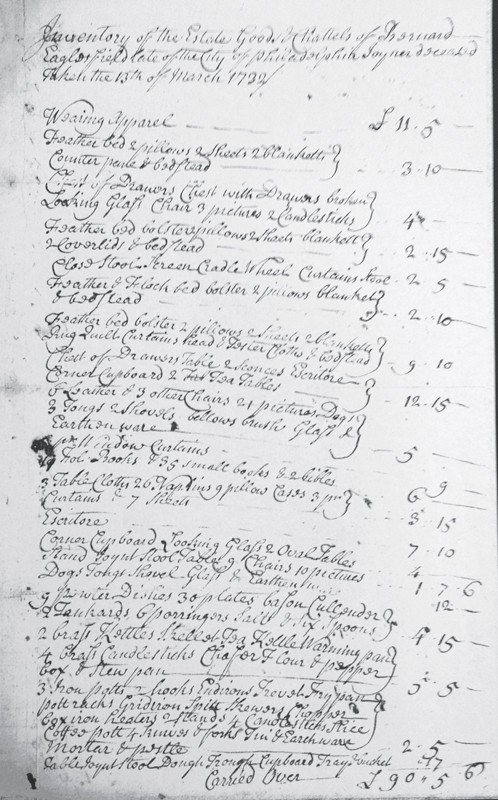 Inventory of the Estate Goods & Chattels of Bernard
Eaglesfield late of the City of Philadelphia Joyner deceased
Taken the 13th of March 1722/
Wearing Apparel £ 11 .. 5
Feather bed 2 pillows 2 Sheets 2 blanketts
Counter pane & bedstead 3 .. 10
Chest of Drawers Chest with Drawers broken
Looking Glass Chair 3 pictures 2 Candlesticks 4
Feather bed bolster 2 pillows 2 Sheets blankett
2 Coverlids & bedstead 2 .. 15
Close Stool Screen Cradle Wheel Curtains 2 .. 5
Feather & Flock bed bolster 2 pillows blankett
& bedstead 2 .. 10
Feather bed bolster 2 pillows 2 Sheets 2 blanketts
Rug Quilt Curtains head & Tester Cloths & bedstead 9 .. 10
Chest of Drawers Table 2 Sconces Escritore
Corner Cupboard 2 Tea Tables
Leather & 3 other Chairs 21 pictures Dogs 12 .. 15
3 Tongs 2 Shovels bellows brush Glass &
Earthenware 5
Window Curtains 9
Books & 35 Small books & 2 bibles 6
3 Table Cloths 26 Napkins 9 pillow Cases 3 pr
Curtains & 7 Sheets 3 .. 15
Escritore 7 .. 10
Corner Cupboard Looking Glass 2 Oval Tables
Stand Joynt Stool Table 9 Chairs 10 pictures 4
Dogs Tongs Shovel Glass & Earthen 1 .. 7 .. 6
9 pewter Dishes 30 plates bason Cullender 12
2 Tankards 6 porringers Salt & Six Spoons
2 brass Kettles Skellet Tea Kettle Warming pan 4 .. 15
4 brass Candlesticks Chafer Flour & pepper
box & Stew pan 5 .. 5
3 Iron potts 2 hooks Endirons Trevet Frypan
pottracks Gridiron Spitt Skewers Chopper
box iron heaters 2 Stands 4 Candlesticks Slice
Coffee pott 4 knives & forks Tin & Earthware
Mortar & pestle 2 .. 5
Table Joynt Stool Dough Trough Cupboard Tray & bucket 17
Carried Over £ 90 .. 5 .. 6